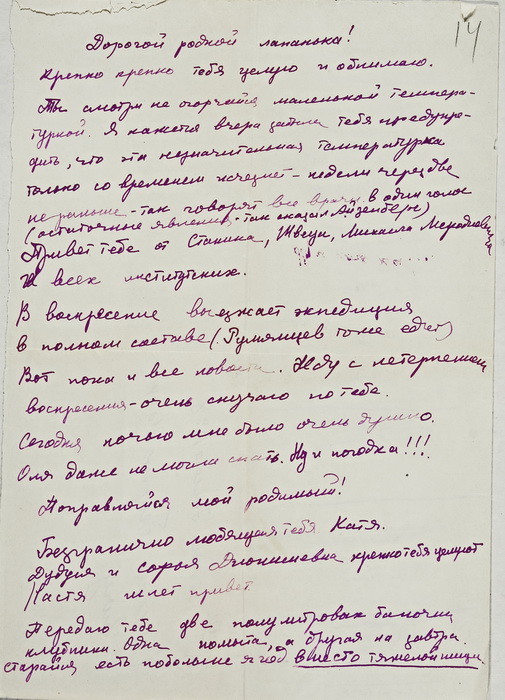 14
Дорогой родной лапанька!
Крепко крепко тебя целую и обнимаю.
Ты смотри не огорчайся маленькой темпера-
туркой. Я кажется вчера забыла тебя предупре-
дить, что эта незначительная температурка
только со временем исчезнет - недели через две
не раньше - так говорят все врачи в один голос
(остаточные явления - так сказал Айзенберг)
Привет тебе от Станина, Швеца, Михаила
И всех институтских.
В воскресение выезжает экпедиция
в полном составе (Румянцев тоже едет)
Вот пока и все новости. Жду с нетерпением
воскресения - очень скучаю по тебе.
Сегодня ночью мне было очень душно.
Оля даже не могла спать. Ну и погодка!!!
Поправляйся мой родимый!
Безгранично любящая тебя Катя.
и Софья Дионисиевна крепко тебя целуют
Настя шлет привет
Передаю тебе две полулитровых баночки
клубники. Одна помыта, а другая на завтра.
старайся есть побольше ягод вместо тяжелой пищи.